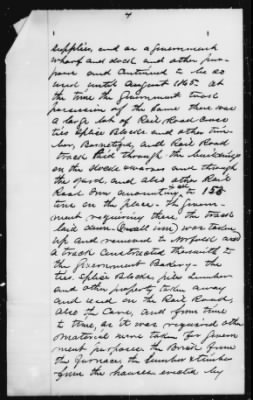 4
supplies, and as a Government
wharf and dock and other pur-
poses and continued to be so
used until August 1865. at
the time the Government took
possession of the same there was
a large lot of Rail Road
ties Splice Blocks and other tim-
ber, and Rail Road
track laid through the buildings
on the dock and through
the yard and also other Rail
Road Iron amounting to 150
tons on the place. The Govern-
ment requiring there, the track
laid down (small iron) was taken
up and removed to Norfolk and
a track constructed therewith to
the Government Bakery. The
ties, Splice Blocks, piles Lumber
and other property taken away
and used on the Rail Roads,
also the Cars, and from time
to time, as it was required other
material were taken for govern
ment purposes, the Brick from
the furnace, the Lumber & timber
from the houses erected by